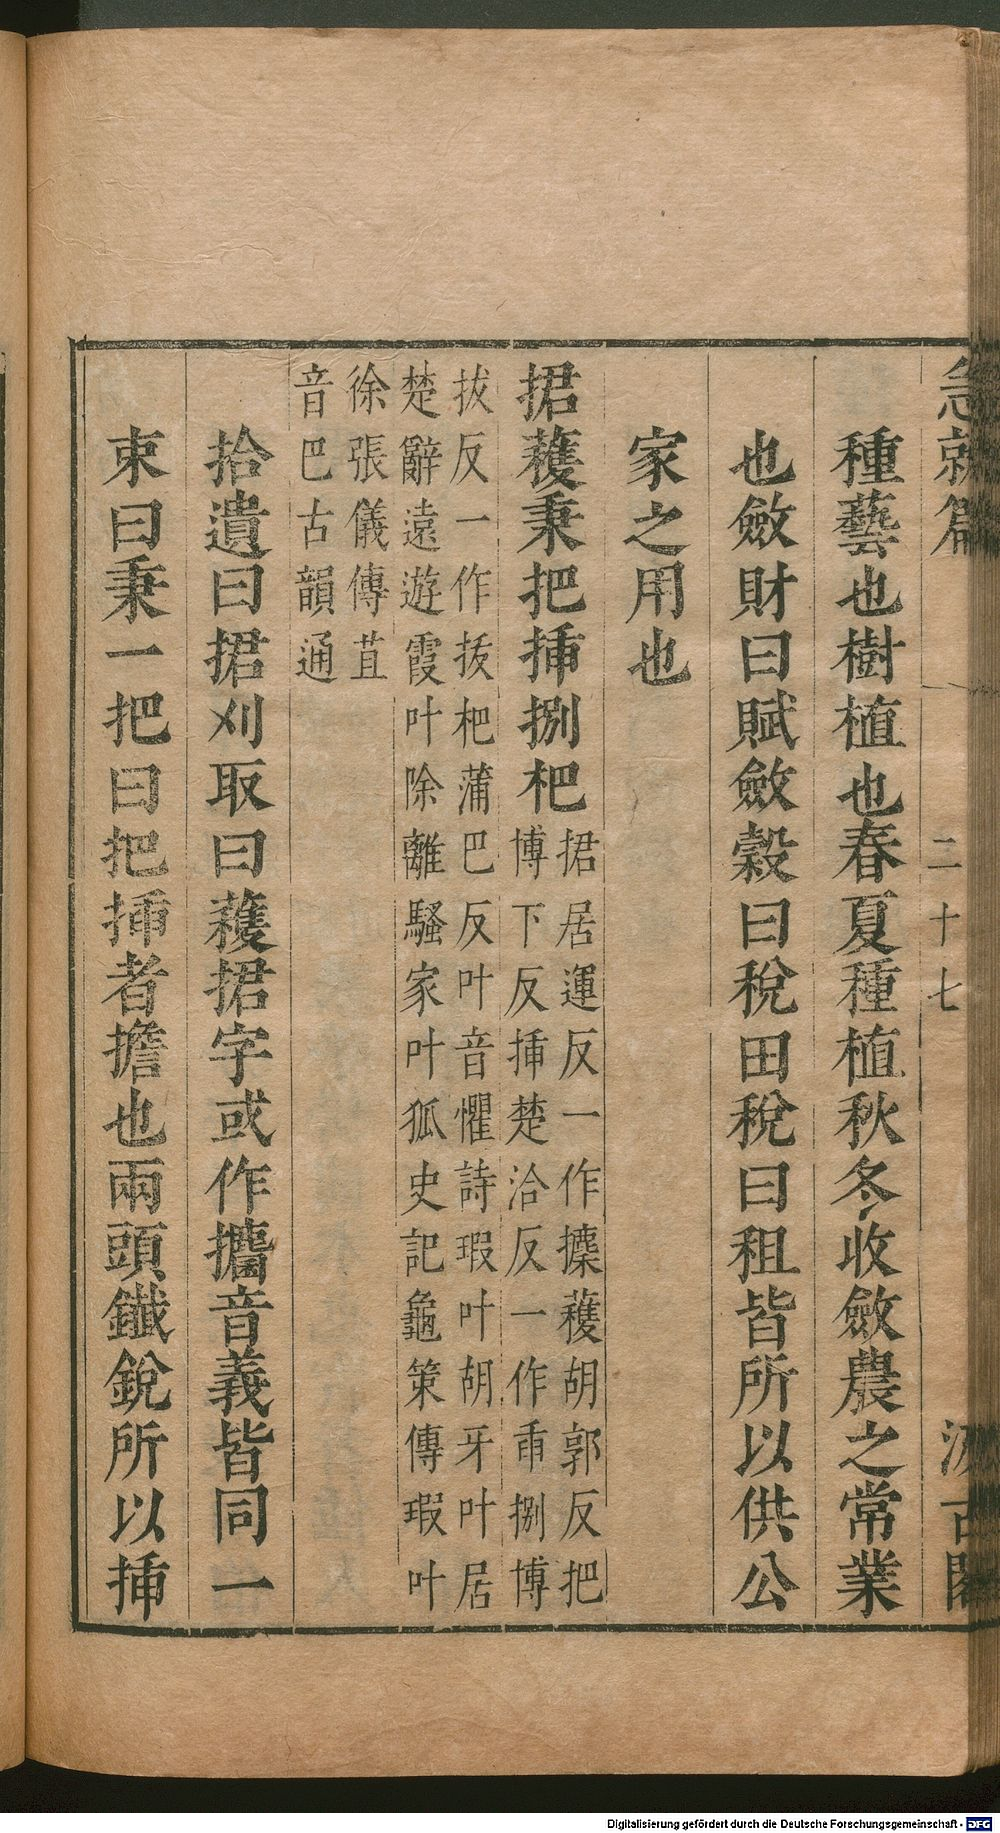 急就篇 二十七 汲古閣
種藝也樹植也春夏種植秋冬收斂農之常業
也斂財曰賦斂穀曰稅田稅曰租皆所以供公
家之用也
捃穫秉把揷捌杷
捃居運反一作攈穫胡郭反把
博下反揷楚洽反一作臿捌博
拔反一作拔杷蒲巴反叶音懼詩瑕叶胡牙叶居
楚辭遠遊霞叶除離騷家叶狐史記龜策傳瑕叶
徐張儀傳苴
音巴古韻通
拾遺曰捃刈取曰穫捃字或作𢹲音義皆同一
束曰秉一把曰把揷者擔也兩頭鑯銳所以揷
Digitalisierung gefördert durch die Deutsche Forschungsgemeinschaft - DFG